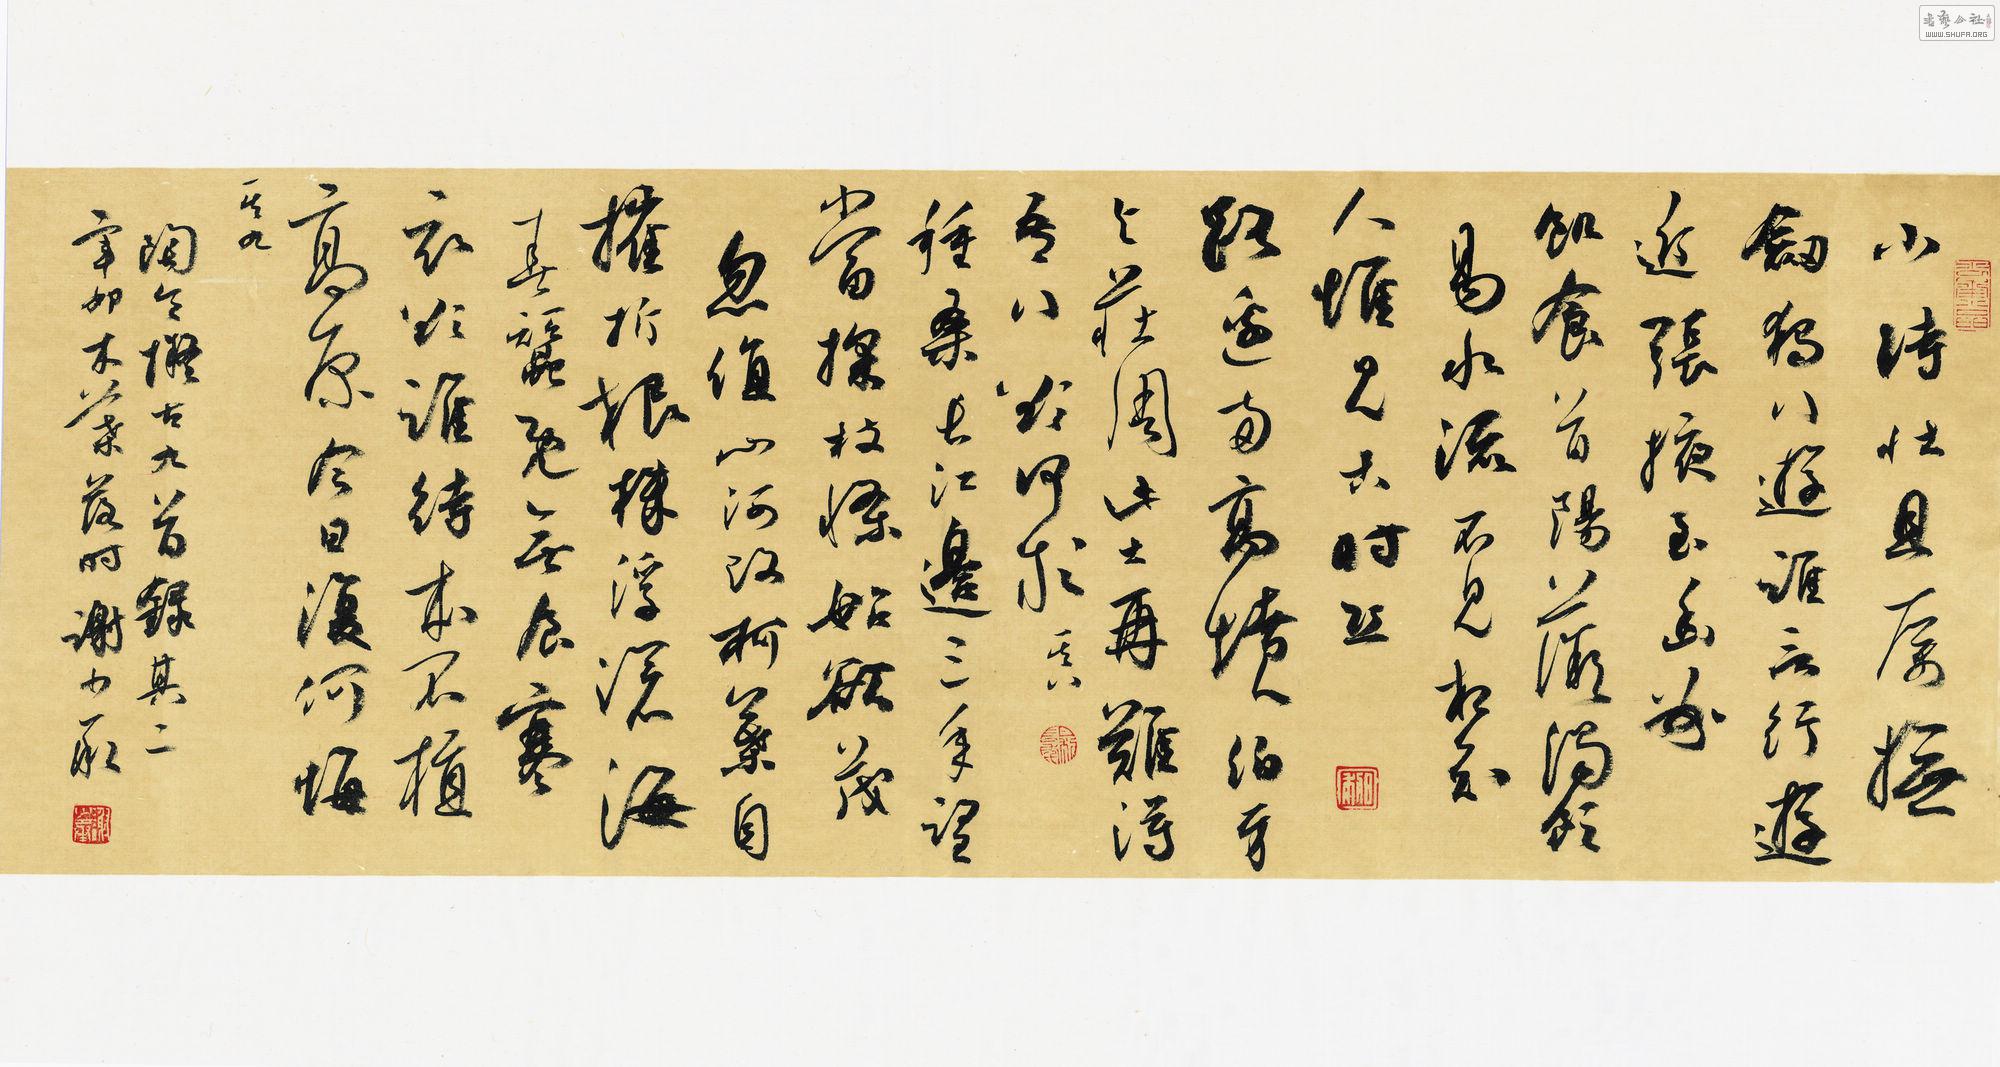 少時壯且厲撫
劍獨行遊誰言行遊
近張掖至幽州
飢食首陽薇渴飲
易水流不見相知
人惟見古時丘
路邊兩高墳伯牙
與莊周此士再難得
吾行欲何求 其八
種桑長江邊三年望
當採枝條始欲茂
忽值山河改柯葉自
摧折根株浮滄海
春蠶既無食寒
衣欲誰待本不植
高原今日復何悔
其九
陶令擬古九首錄其二
辛卯木葉落時謝少承
書藝公社
WWW.SHUFA.ORG